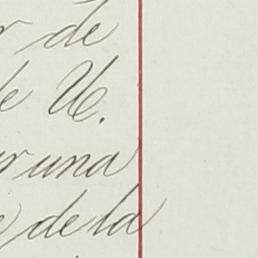 de
U.
una
de la